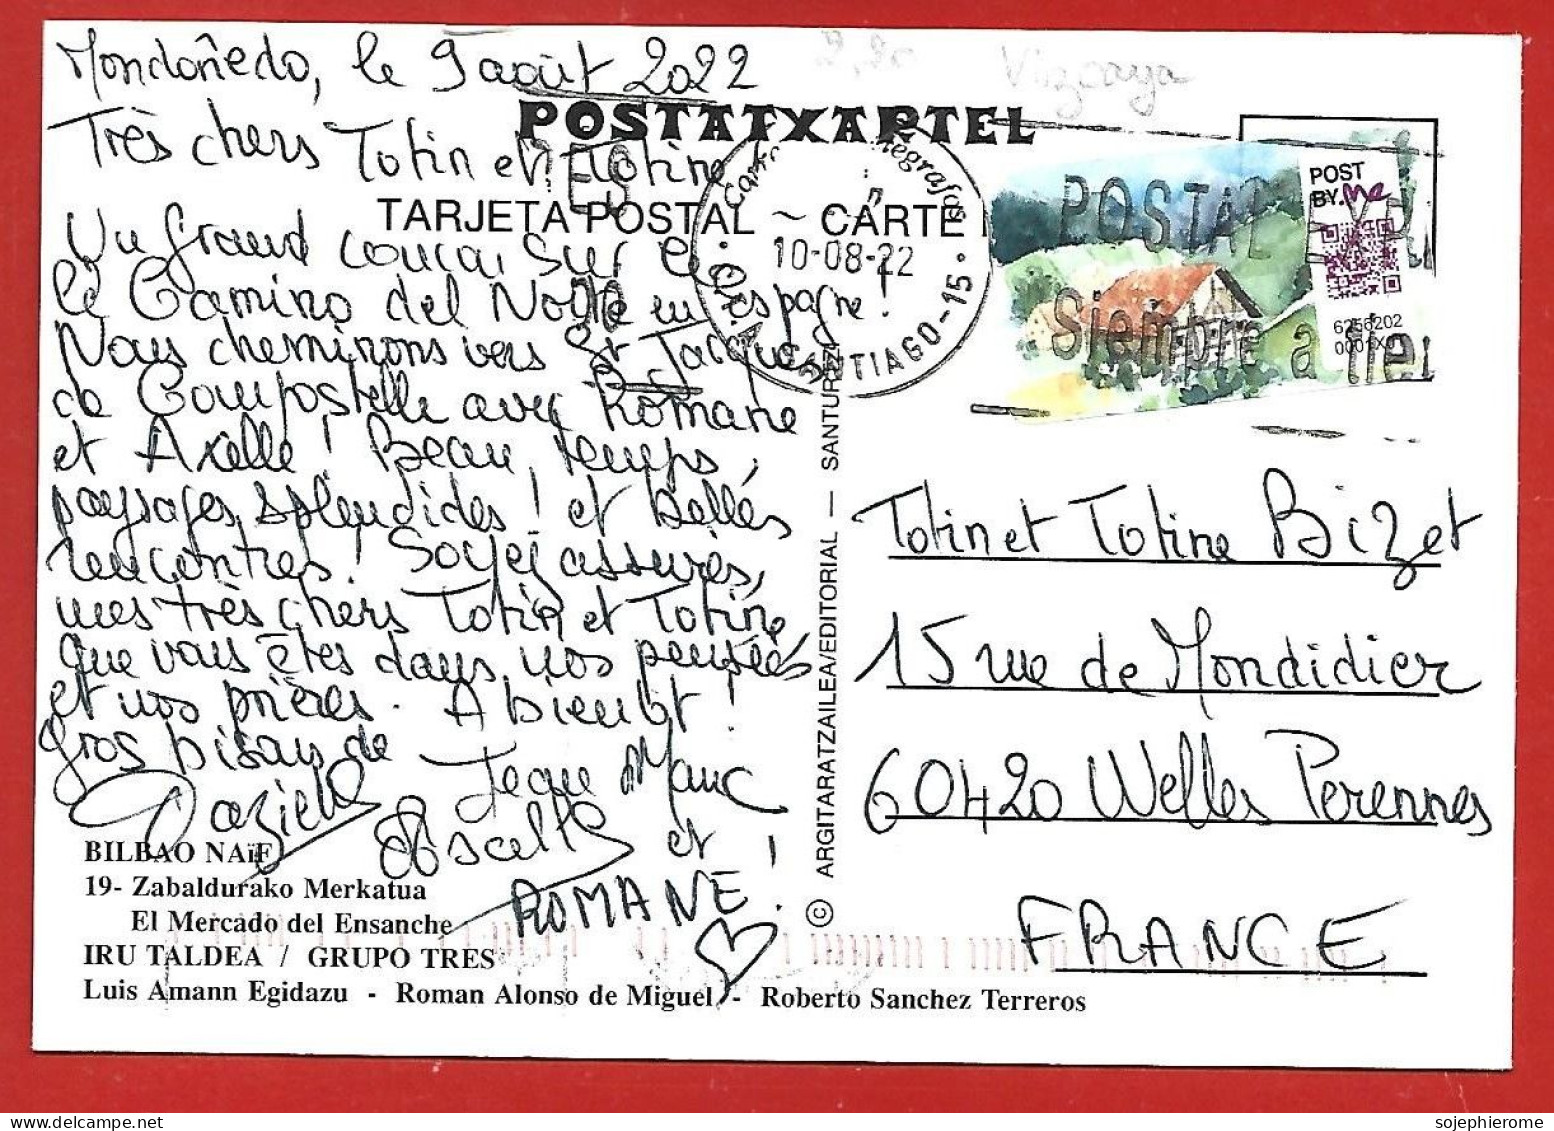 Mondoñedo, le 9 août 2022
Très chers Totin et Totine
Un grand coucou sur le
le Camino del Norte en Espagne !
Nous cheminons vers St Jacques
de Compostelle avec Romane
et Axelle ! Beau temps,
paysages splendides ! et belles
rencontres ! Soyez assurés,
mes très chers Totin et Totine
que vous êtes dans nos pensées
et nos prières. A bientôt !
Gros bisous de
Jean Marc
et
ROMANE !
2,20
Vizcaya
POSTATXARTEL
TARJETA POSTAL - CARTE
10-08-22
SANTIAGO-15
POSTAL EXP
Siempre a
POST
BY.me
6256202
0001X
Totin et Totine Bizet
15 rue de Mondidier
60420 Welles Perennes
FRANCE
© ARGITARATZAILEA/EDITORIAL — SANTURTZI
BILBAO NAïF
19- Zabaldurako Merkatua
El Mercado del Ensanche
IRU TALDEA / GRUPO TRES
Luis Amann Egidazu - Roman Alonso de Miguel - Roberto Sanchez Terreros
sojephierome